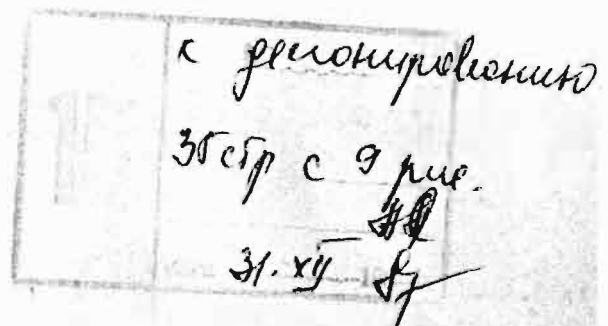 к депонированию
35 стр с 9 рис.
31. XII